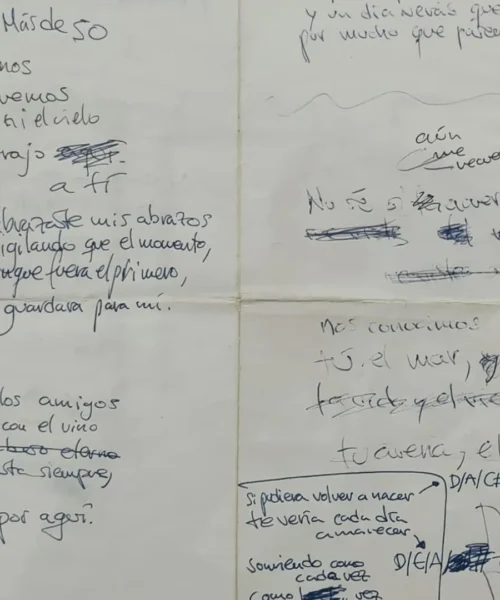 Más de 50
mos
vemos
ni el cielo
rajo
a tí
abrazaste mis abrazos
igilando que el momento,
nque fuera el primero,
guardara para mí.
los amigos
con el vino
beso eterno
sta siempre,
por aquí.
y un día verás que
por mucho que parec
aún
me
recuer
No sé si
nos conocimos
tú, el mar,
y el
tu arena, el
si pudiera volver a nacer
te vería cada día
amanecer
sonriendo como
cada vez
como vez
D/A/C#
D/E/A/